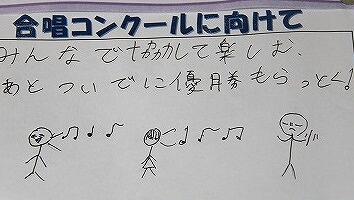 合唱コンクールに向けて
みんなで協力して楽しむ、
あとついでに優勝もらっとく!